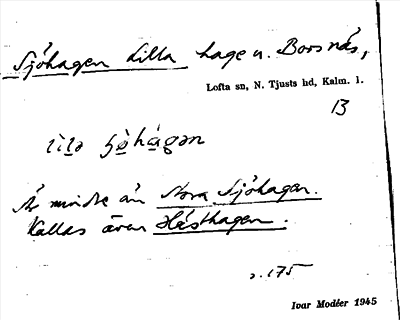 Sjöhagen Lilla hage u. Borsnäs,
Lofta sn, N. Tjusts hd, Kalm. l.
13
Är mindre än Stora Sjöhagen.
Kallas även Hästhagen.
s. 175
Ivar Modéer 1945